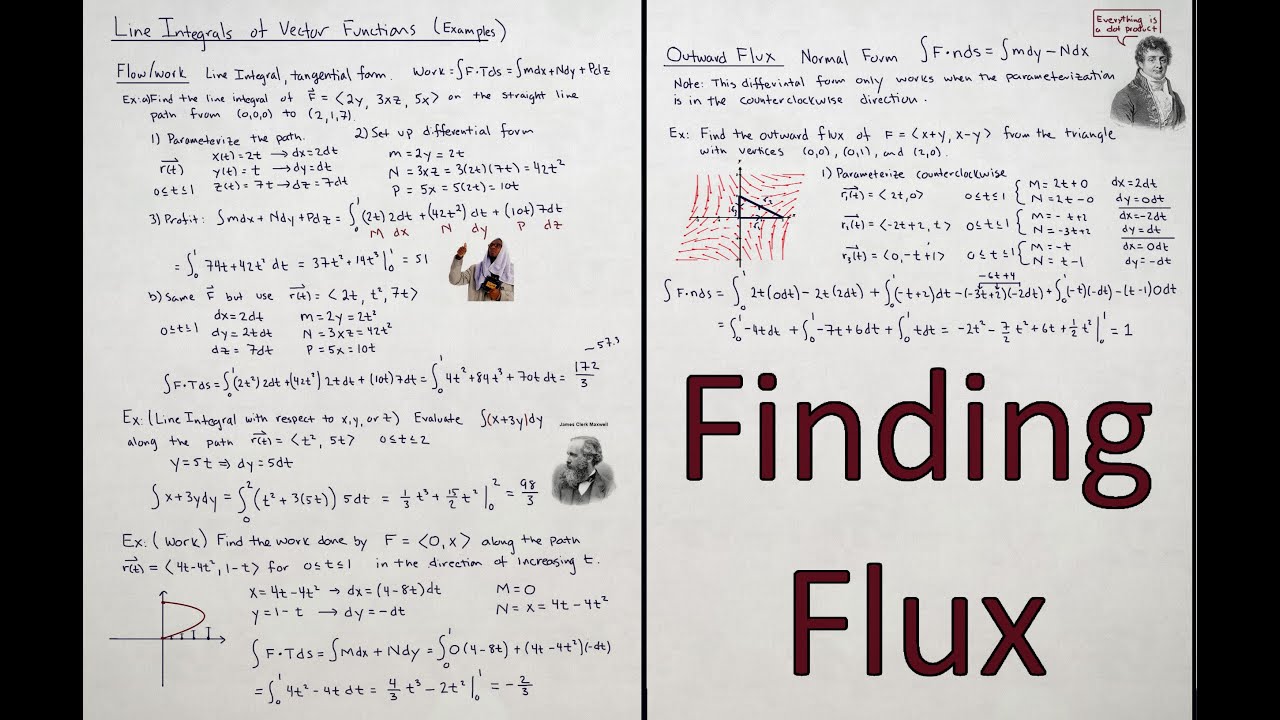 Line Integrals of Vector Functions (Examples)
Flow/work Line Integral, tangential form. Work = ∫F·Tds = ∫mdx+Ndy+Pdz
Ex: a) Find the line integral of F⃗ = ⟨2y, 3xz, 5x⟩ on the straight line
path from (0,0,0) to (2,1,7).
1) Parameterize the path. 2) Set up differential form
r⃗(t) x(t)=2t → dx=2dt m=2y=2t
y(t)=t → dy=dt N=3xz=3(2t)(7t)=42t²
0≤t≤1 z(t)=7t → dz=7dt P=5x=5(2t)=10t
3) Profit: ∫mdx+Ndy+Pdz = ∫₀¹ (2t)2dt+(42t²)dt+(10t)7dt
M dx N dy P dz
= ∫₀¹ 74t+42t² dt = 37t²+14t³|₀¹ = 51
b) Same F⃗ but use r⃗(t) = ⟨2t, t², 7t⟩
dx=2dt m=2y=2t²
0≤t≤1 dy=2tdt N=3xz=42t²
dz=7dt P=5x=10t
~57.3
∫F·Tds = ∫₀¹(2t²)2dt+(42t²)2tdt+(10t)7dt = ∫₀¹ 4t²+84t³+70t dt = 172/3
Ex: (Line Integral with respect to x,y, or z) Evaluate ∫(x+3y)dy
along the path r⃗(t) = ⟨t², 5t⟩ 0≤t≤2
James Clerk Maxwell
y=5t ⇒ dy=5dt
∫x+3ydy = ∫₀²(t²+3(5t))5dt = 1/3 t³ + 15/2 t²|₀² = 98/3
Ex: (Work) Find the work done by F=⟨0,x⟩ along the path
r⃗(t) = ⟨4t-4t², 1-t⟩ for 0≤t≤1 in the direction of increasing t.
x=4t-4t² → dx=(4-8t)dt M=0
y=1-t → dy=-dt N=x=4t-4t²
∫F·Tds = ∫Mdx+Ndy = ∫₀¹0(4-8t)+(4t-4t²)(-dt)
= ∫₀¹ 4t²-4t dt = 4/3 t³-2t²|₀¹ = -2/3
Everything is
a dot product
Outward Flux Normal Form ∫F·nds = ∫mdy-Ndx
Note: This differintal form only works when the parameterization
is in the counterclockwise direction.
Ex: Find the outward flux of F=⟨x+y, x-y⟩ from the triangle
with vertices (0,0), (0,1), and (2,0).
1) Parameterize counterclockwise
r⃗₁(t) = ⟨2t,0⟩ 0≤t≤1 { M=2t+0 dx=2dt
N=2t-0 dy=0dt
r⃗₂(t) = ⟨-2t+2, t⟩ 0≤t≤1 { M=-t+2 dx=-2dt
N=-3t+2 dy=dt
r⃗₃(t) = ⟨0,-t+1⟩ 0≤t≤1 { M=-t dx=0dt
N=t-1 dy=-dt
-6t+4
∫F·nds = ∫₀¹ 2t(0dt)-2t(2dt)+∫₀¹(-t+2)dt-(-3t+2)(-2dt)+∫₀¹(-t)(-dt)-(t-1)0dt
= ∫₀¹-4tdt + ∫₀¹-7t+6dt + ∫₀¹tdt = -2t²-7/2 t²+6t+1/2 t²|₀¹ = 1
Finding
Flux